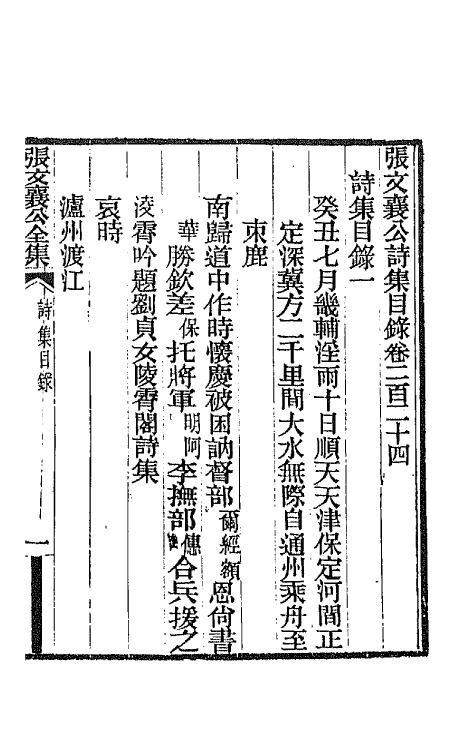 張文襄公詩集目錄卷二百二十四
詩集目錄一
癸丑七月畿輔淫雨十日順天天津保定河間正
定深冀方二千里間大水無際自通州乘舟至
東鹿
南歸道中作時懷慶被困訥督部爾經額恩尙書
華勝欽差保托將軍明阿李撫部僡合兵援之
淩霄吟題劉貞女陵霄閣詩集
哀時
瀘州渡江
張文襄公全集
詩集目錄
一